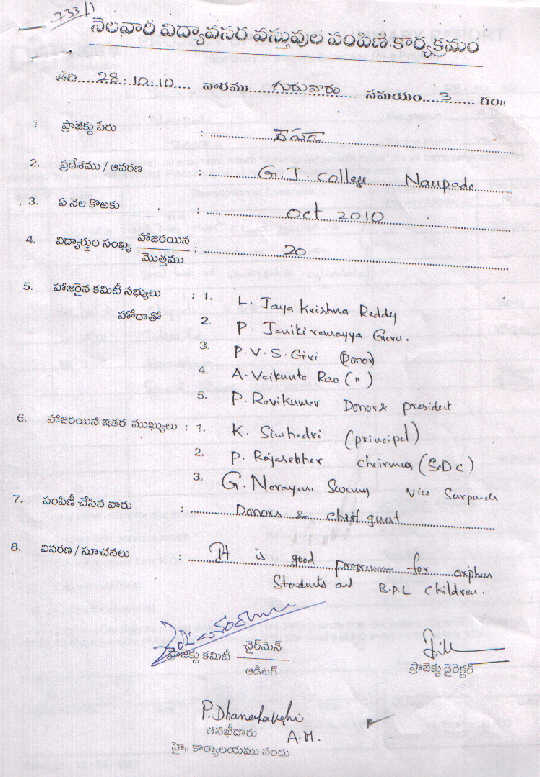 233/1
నెలవారీ విద్యావసర వస్తువుల పంపిణీ కార్యక్రమం
తేది 28.10.10 వారము గురువారం సమయం 3 గం॥
1. ప్రాజెక్టు పేరు :
2. ప్రదేశము / ఆవరణ : G.J College Naupada
3. ఏ నెల కొఱకు : Oct 2010
4. విద్యార్థుల సంఖ్య హాజరయిన : 20
మొత్తము
5. హాజరైన కమిటీ సభ్యులు : 1. L. Jaya Krishna Reddy
హోదాతో 2. P. Janikiramayya Guru.
3. P.V.S. Giri (Donor)
4. A. Vaikunta Rao (")
5. P. Ravikumar Donors president
6. హాజరయిన ఇతర ముఖ్యులు : 1. K. Simhadri (principal)
2. P. Rajasekhar Chairman (S.D.C)
3. G. Narayana Swamy Vice Surpanch
7. పంపిణీ చేసిన వారు : Donors & chief guest
8. వివరణ / సూచనలు : It is good programme for orphan
Students and B.P.L children.
ప్రాజెక్టు కమిటీ ఛైర్‌మెన్
ఆడిటర్
ప్రాజెక్టు డైరెక్టర్
P. Dhanalakshmi
A.M.
హై. కార్యాలయము నందు